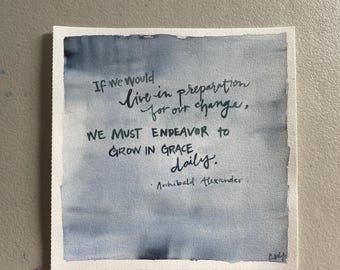 If we would
live in preparation
for our change,
WE MUST ENDEAVOR to
GROW IN GRACE
daily.
· Archibald Alexander ·